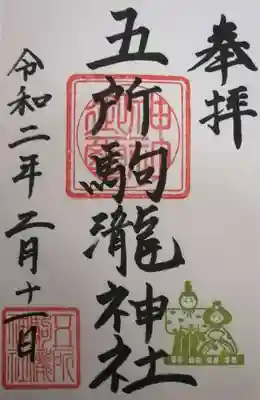 奉拝
五所駒瀧神社
令和二年二月十一日
五所
駒瀧
神社